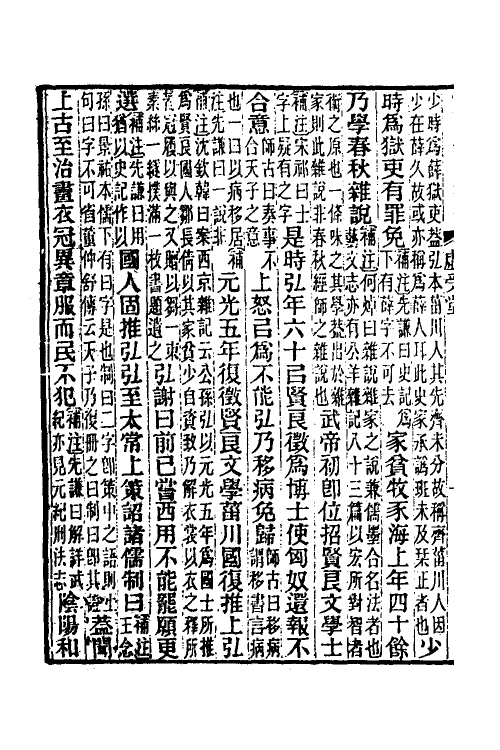 虛受堂
少時爲薛獄吏葢弘本菑川人其先齊未分故稱齊菑川人因
少在薛久故或亦稱爲薛人耳此史家承譌班未及栞正者也
少
時爲獄吏有罪免
補注先謙曰史記爲
下有薛字不可去
家貧牧豕海上年四十餘
乃學春秋雜說
補注何焯曰雜說雜家之說兼儒墨合名法者也
藝文志亦有公羊雜記八十三篇以宏所對智者
術之原也一條味之其學葢出於雜
家則此雜說非春秋經師之雜說也
武帝初卽位招賢良文學士
補注宋祁曰士
字上疑有之字
是時弘年六十㠯賢良徵爲博士使匈奴還報不
合意
師古曰奏事不
合天子之意
上怒㠯爲不能弘乃移病免歸
師古曰移病
謂移書言病
也一曰以病移居補
注先謙曰一說非
元光五年復徵賢良文學菑川國復推上弘
補注沈欽韓曰案西京雜記云公孫弘以元光五年爲國士所推
爲賢良國人鄒長倩以其家貧少自資致乃解衣裳以衣之釋所
著冠履以與之又贈以芻一束
素絲一襚撲滿一枚書題遺之
弘謝曰前已嘗西用不能罷願更
選
補注先謙曰用
猶以史記作以
國人固推弘弘至太常上策詔諸儒制曰
補注
王念
孫曰景祐本儒下有曰字是也制曰二字卽策中之語則上
句曰字不可省董仲舒傳云天子乃復册之曰制曰卽其證
葢聞
上古至治畫衣冠異章服而民不犯
補注先謙曰解詳武
紀亦見元紀刑法志
陰陽和